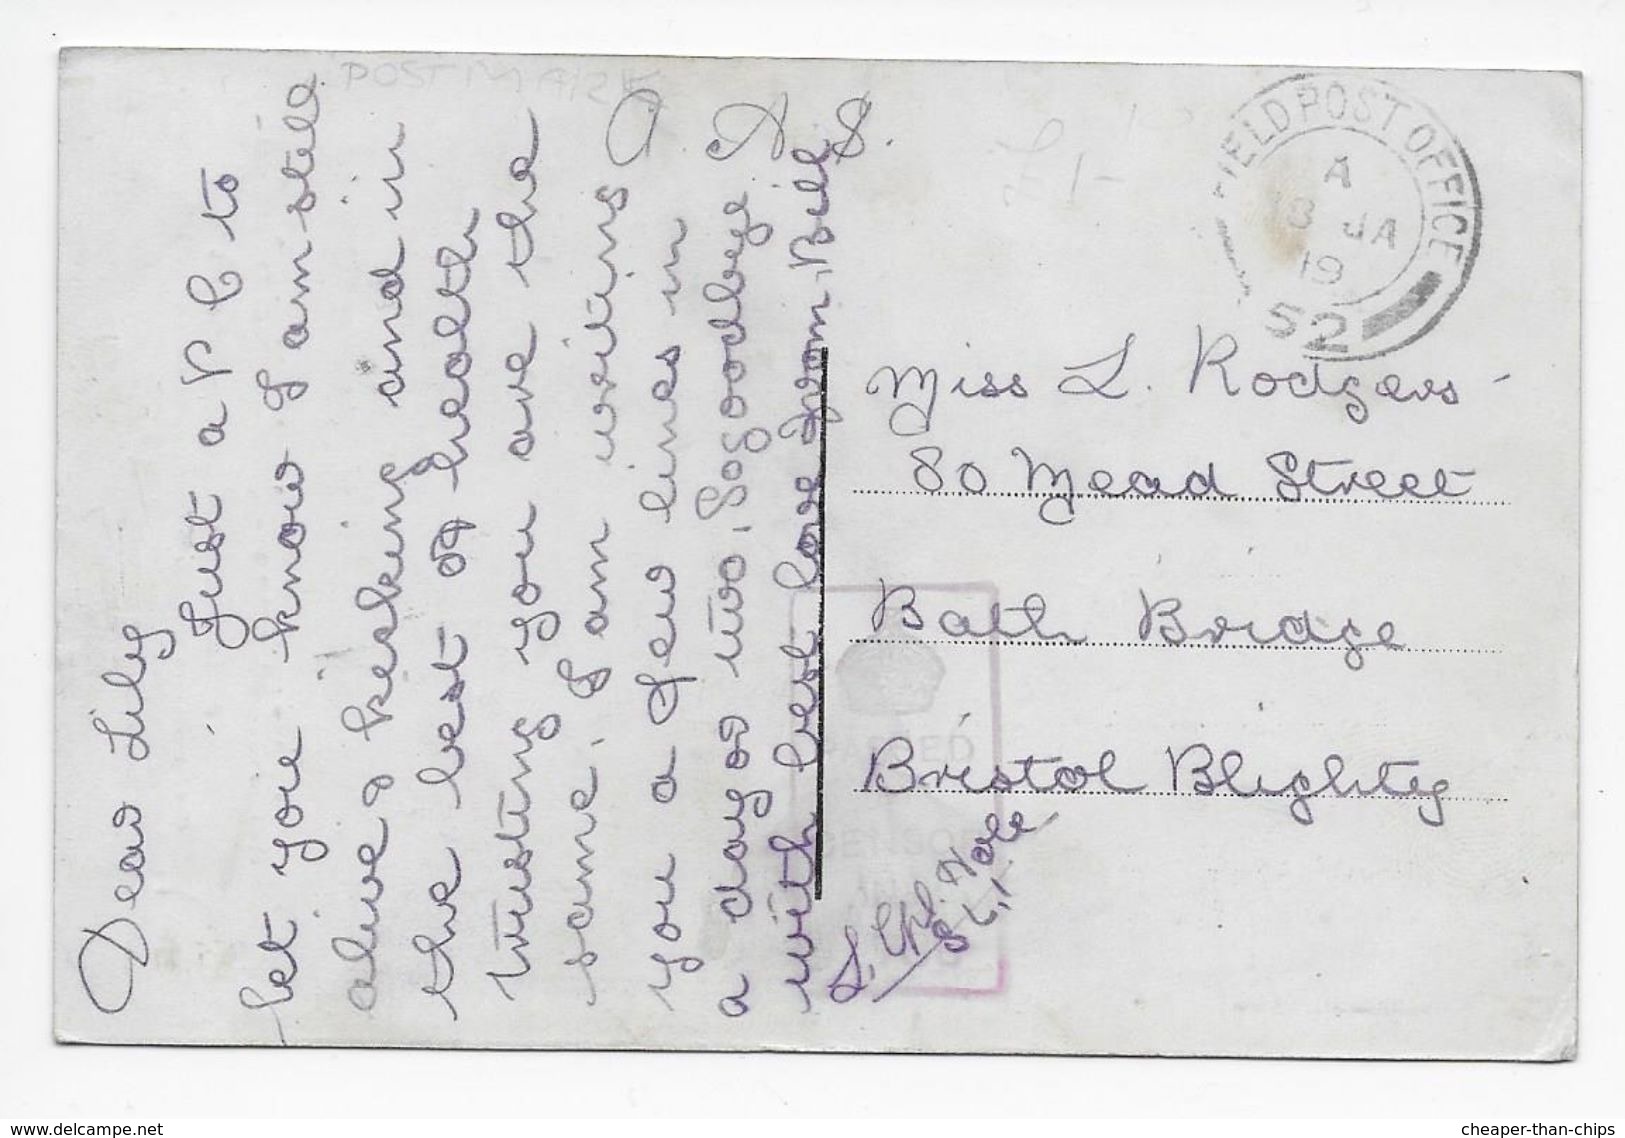 POSTMARK
O. A. S.
£1-
FIELD POST OFFICE
A
13 JA
19
52
Dear Lily
Just a P C to
let you know I am still
alive & kicking and in
the best of health
trusting you are the
same. I am writing
you a few lines in
a day or two, So goodbye
with best love from Bill
Miss L. Rodgers
80 Mead Street
Bath Bridge
Bristol Blighty
PASSED
CENSOR
www.delcampe.net
cheaper-than-chips